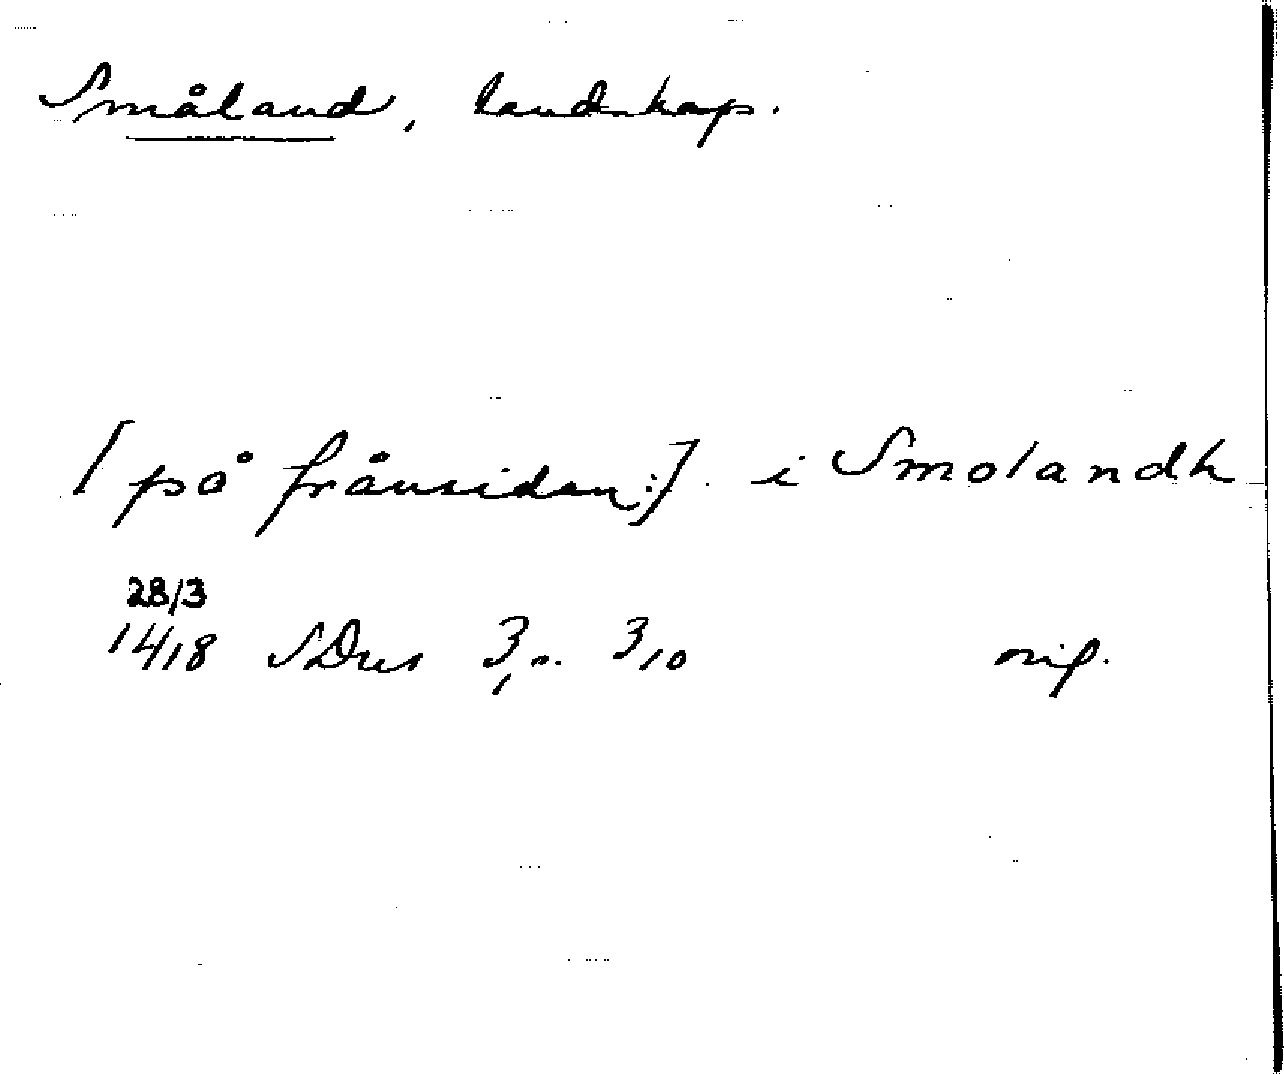 Småland, landskap.
[på frånsidan:] i Smolandh
28/3
1418 SDns 3, s. 310
orig.